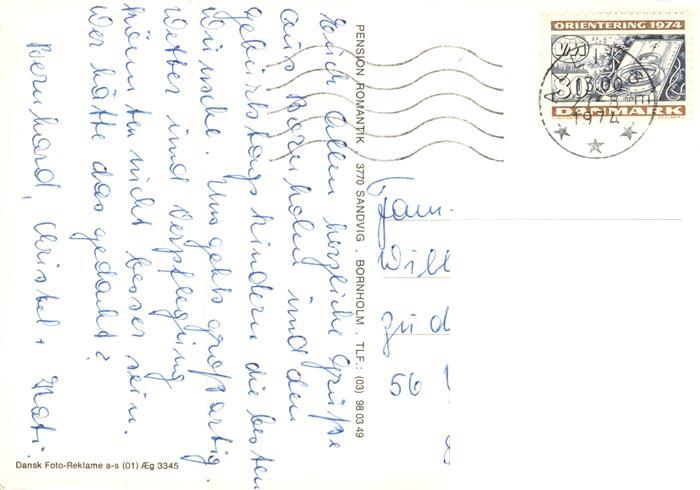 Euch Allen herzliche Grüße
aus Bornholm und den
geburtstags kindern die besten
Wünsche. Uns gehts großartig.
Wetter und Verpflegung
könnten nicht besser sein.
Wer hätte das gedacht?
Bernhard, Christel +
PENSION ROMANTIK . 3770 SANDVIG . BORNHOLM . TLF.: (03) 98 03 49
ORIENTERING 1974
DANMARK
1974
Fam.
Will
zu d
56
Dansk Foto-Reklame a-s (01) Æg 3345